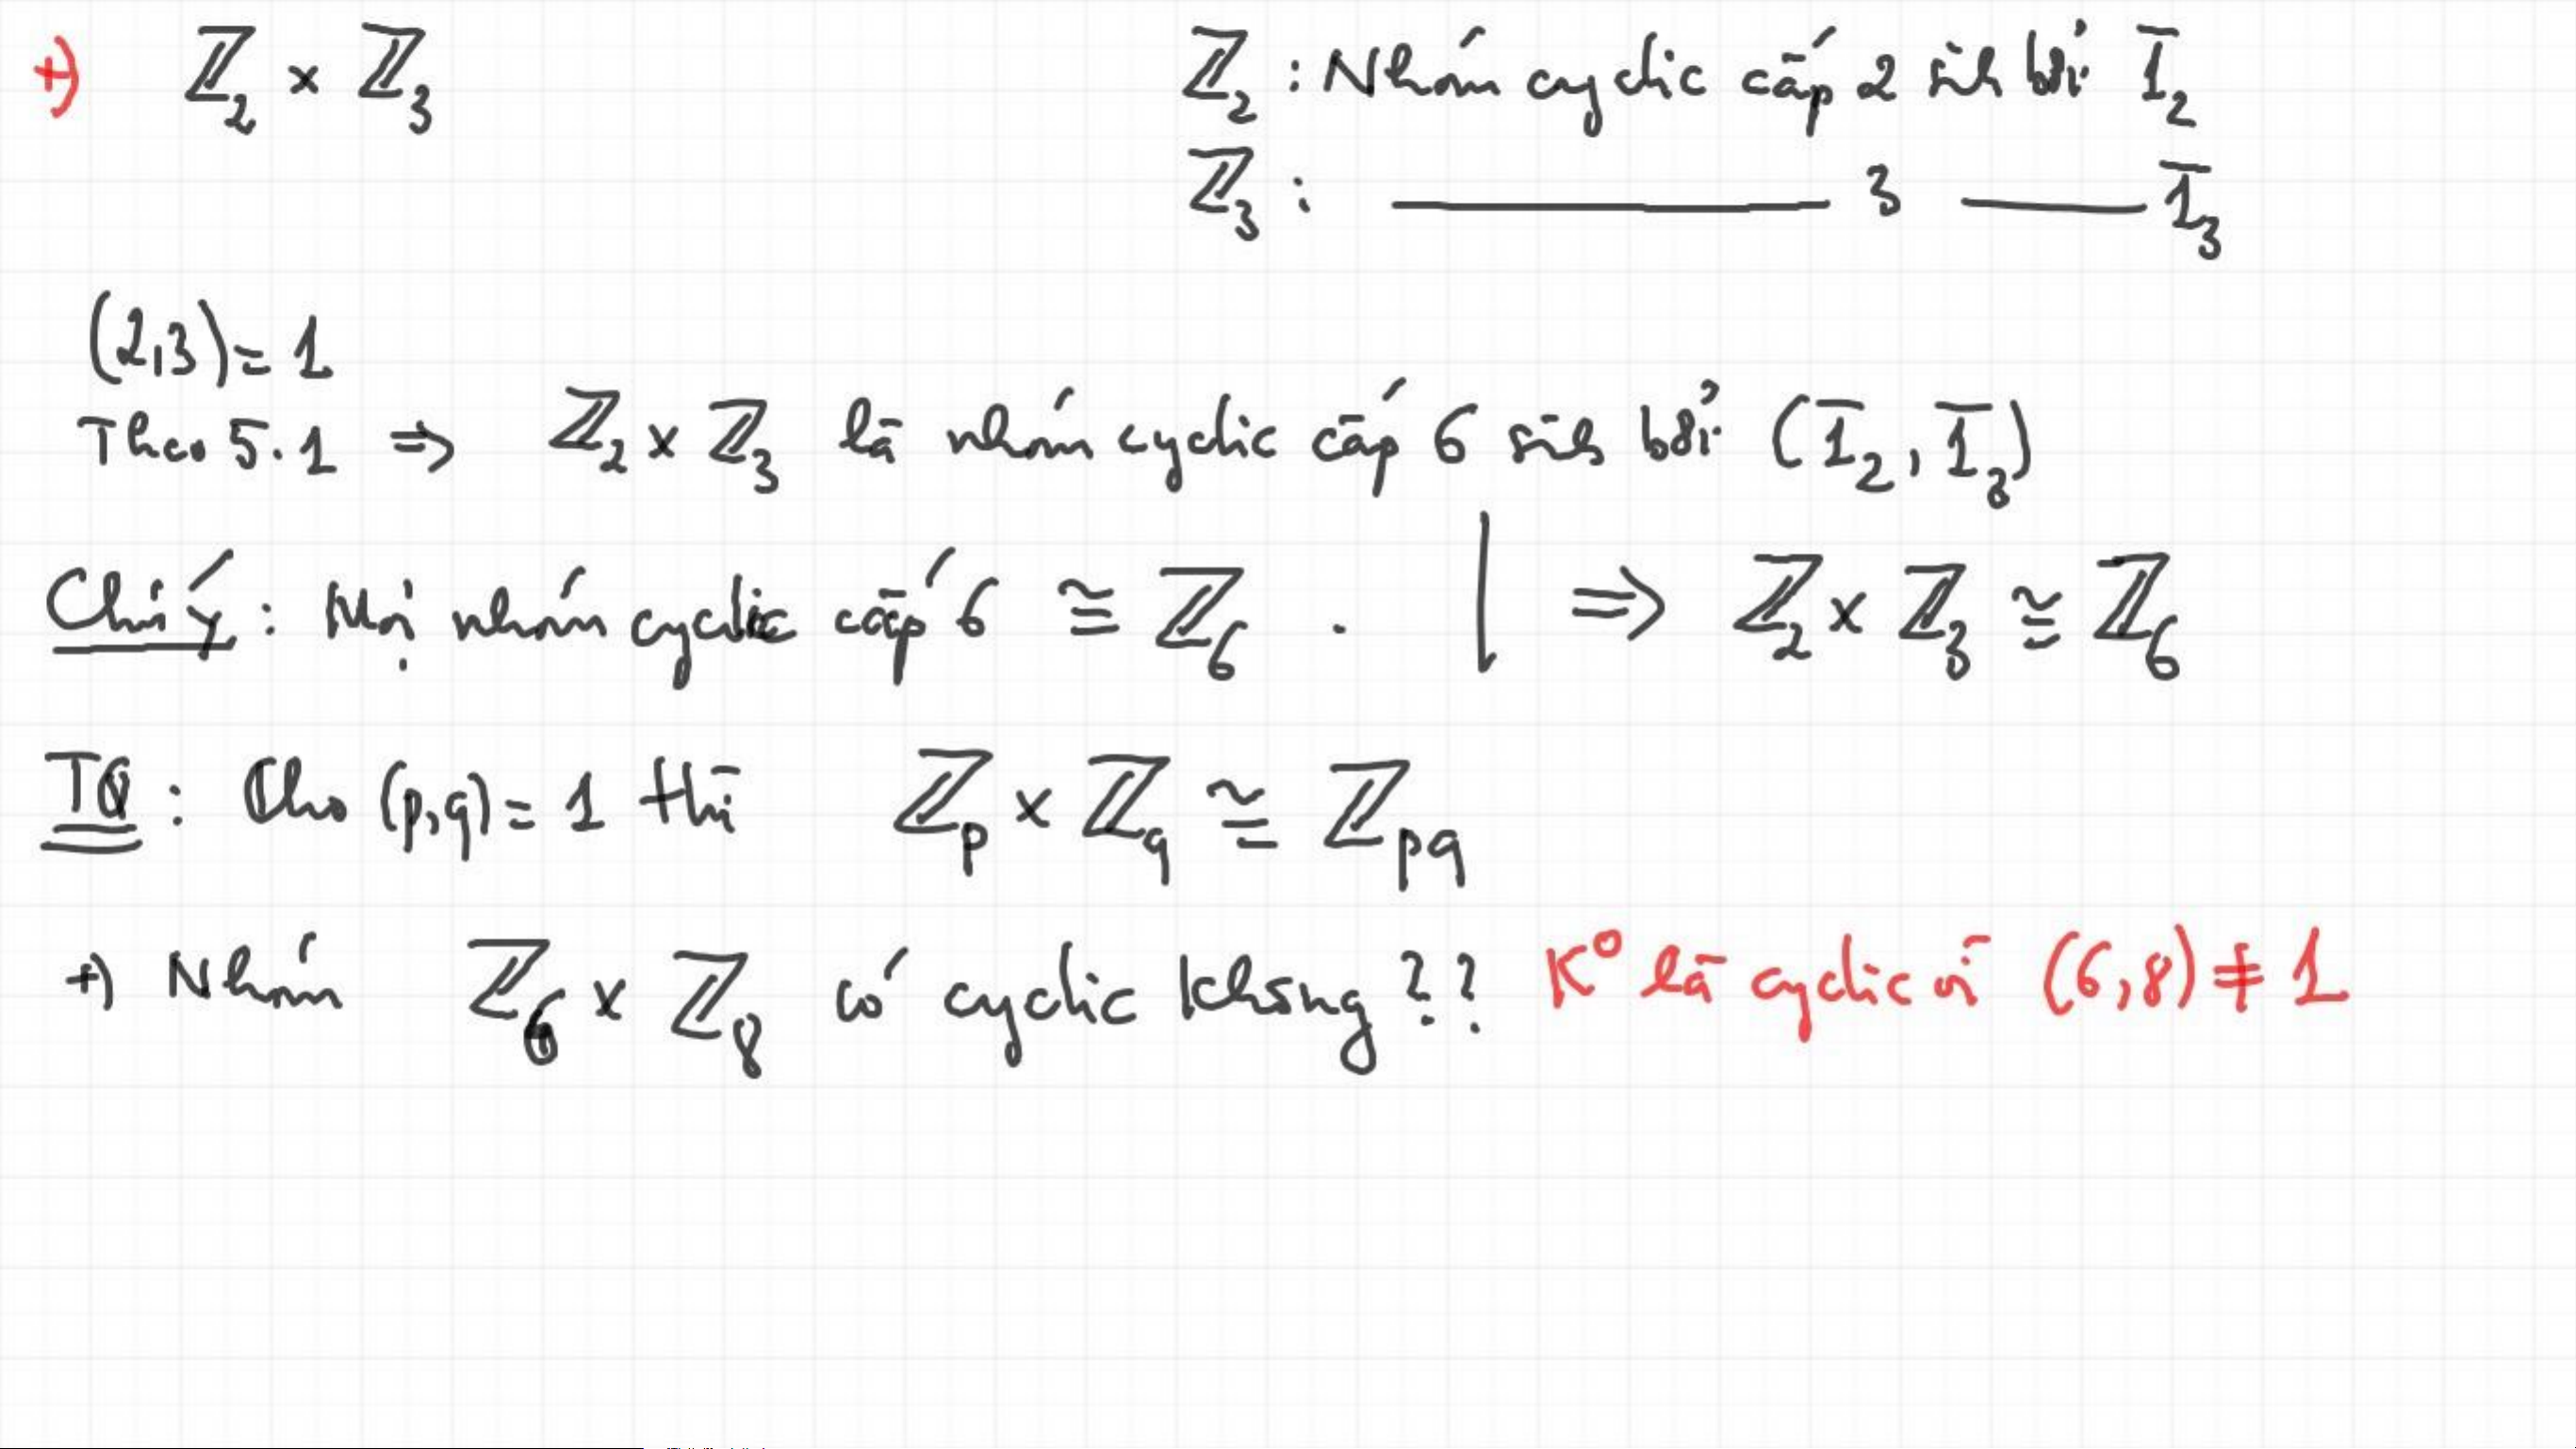 +) ℤ₂ × ℤ₃
ℤ₂ : Nhóm cyclic cấp 2 sinh bởi 1̅₂
ℤ₃ : ——— 3 —— 1̅₃
(2,3) = 1
Theo 5.1 ⇒ ℤ₂ × ℤ₃ là nhóm cyclic cấp 6 sinh bởi (1̅₂, 1̅₃)
Chú ý : Mọi nhóm cyclic cấp 6 ≅ ℤ₆ . | ⇒ ℤ₂ × ℤ₃ ≅ ℤ₆
TQ : Cho (p,q) = 1 thì ℤp × ℤq ≅ ℤpq
+) Nhóm ℤ₆ × ℤ₈ có cyclic không ?? K⁰ là cyclic vì (6,8) ≠ 1